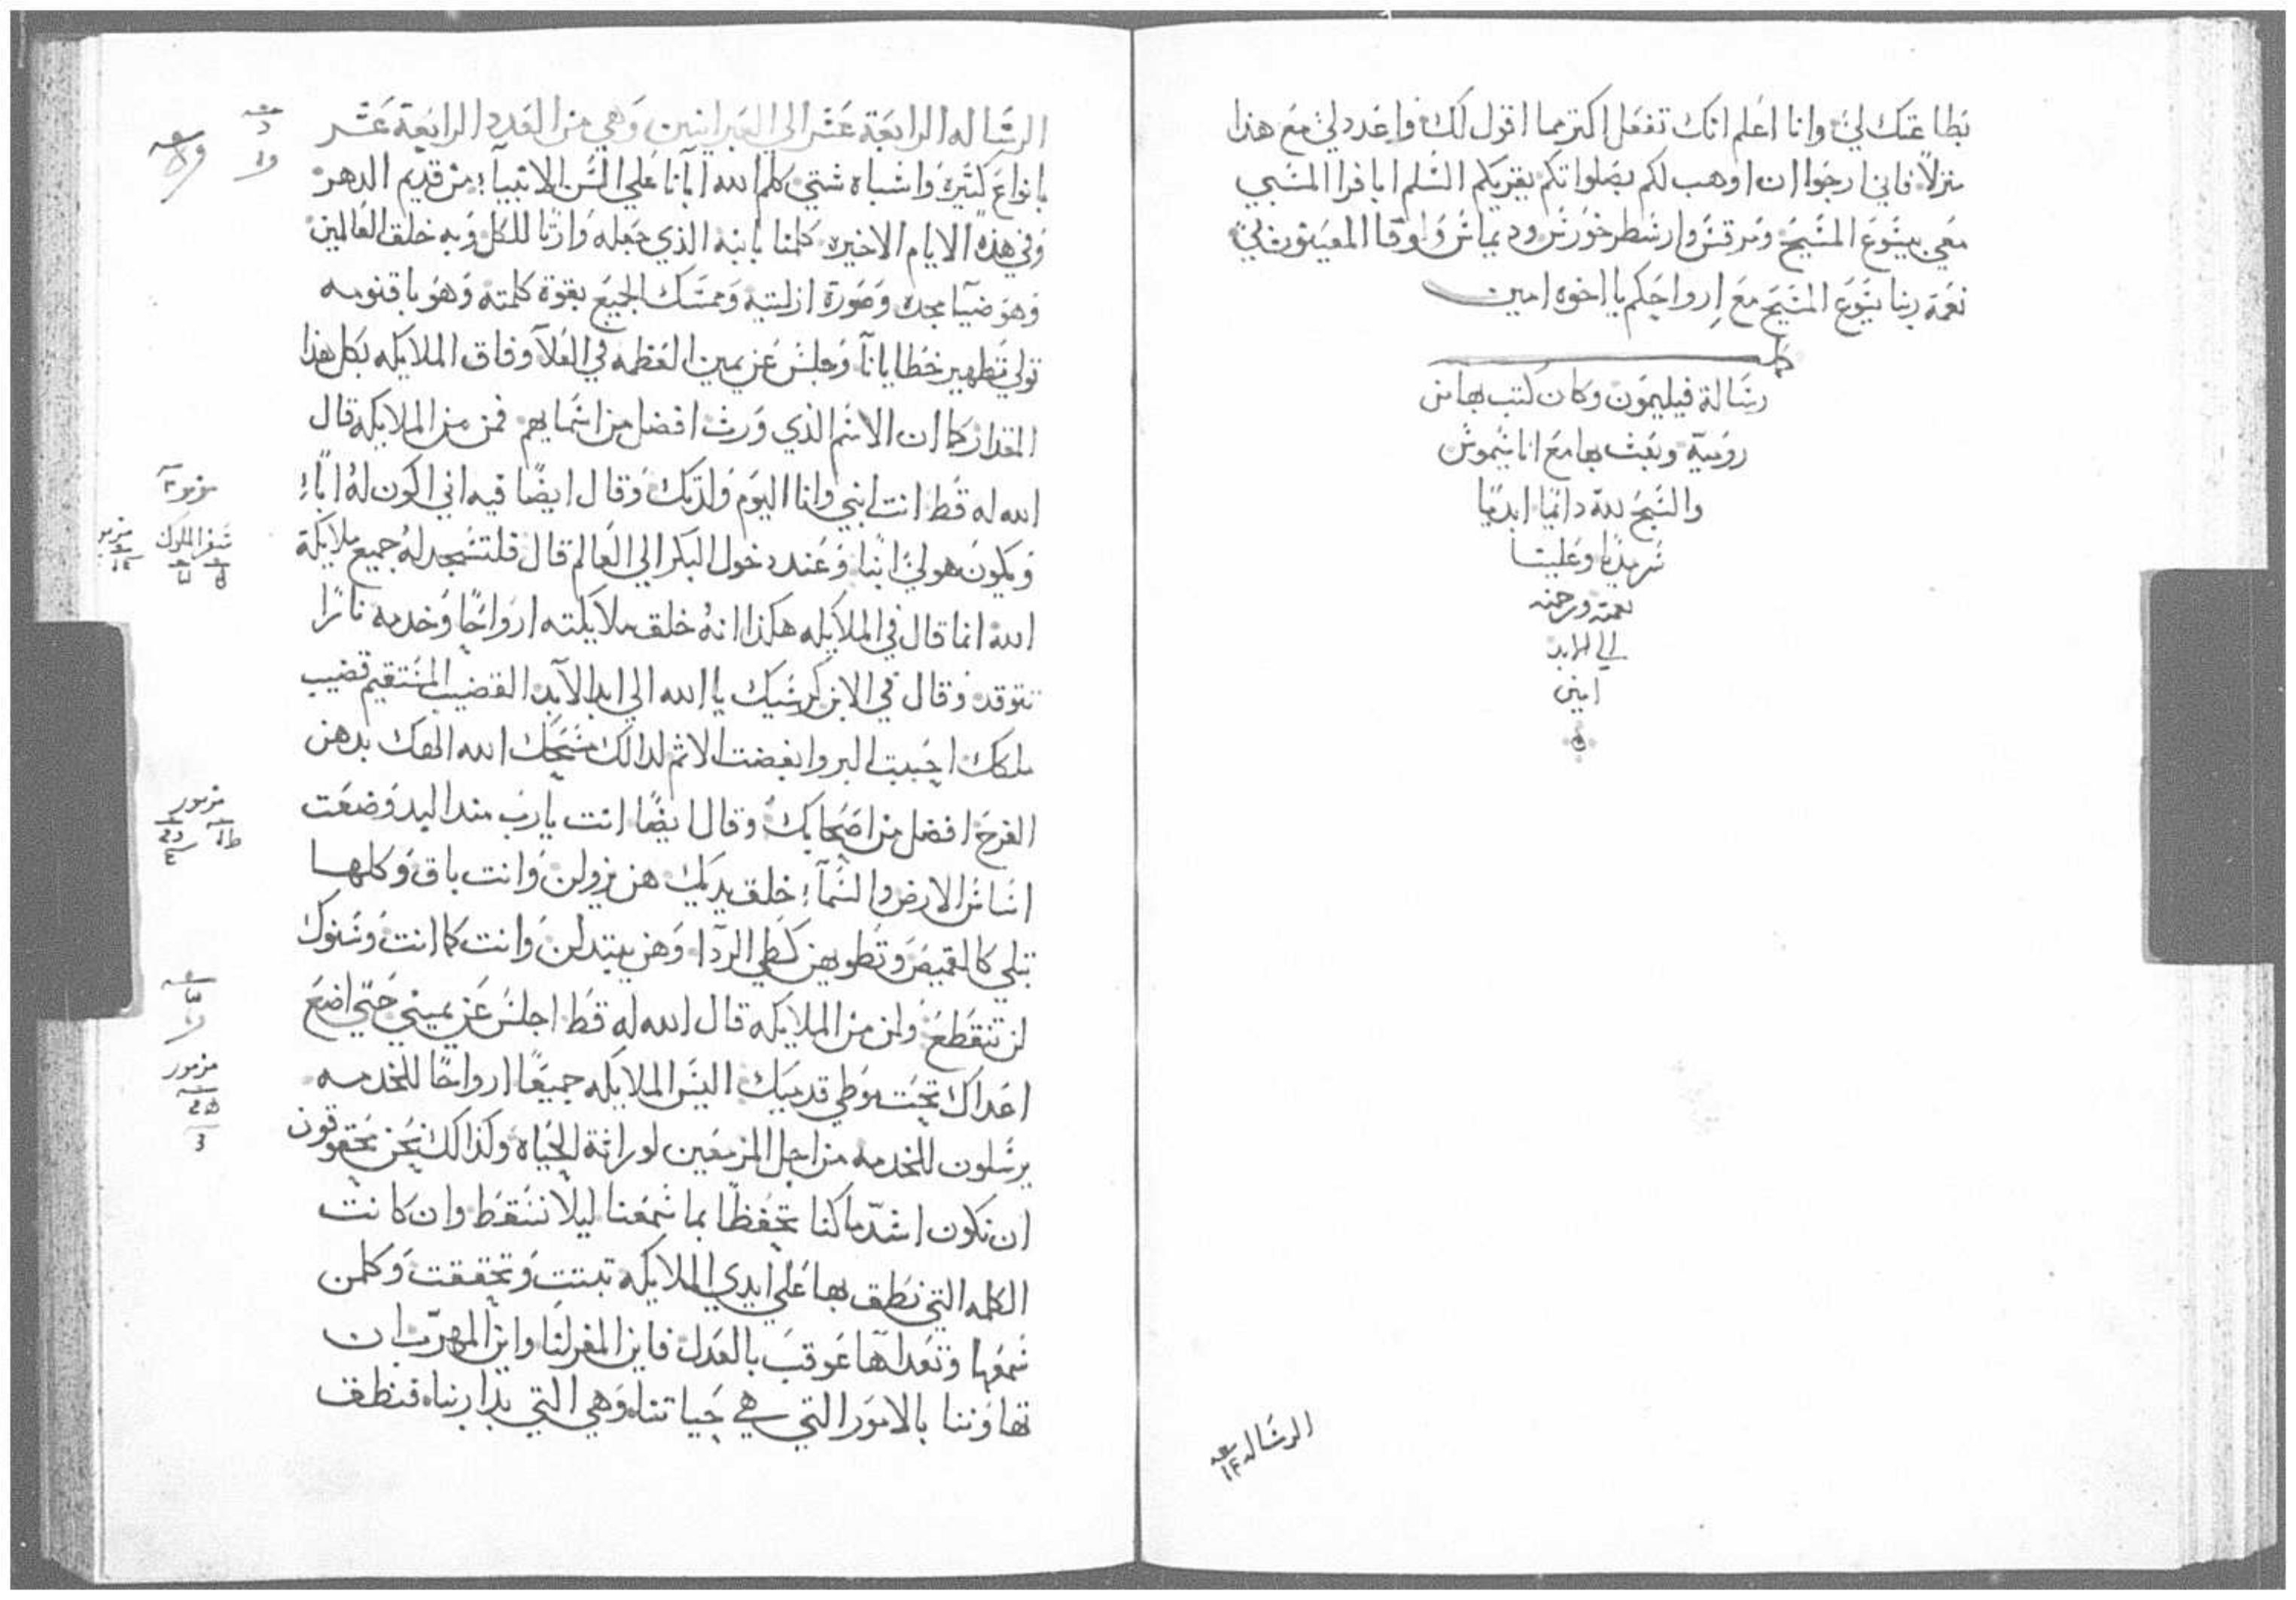 بطاعتك لي وانا اعلم انك تفعل اكتر مما اقول لك واعدد لي مع هذا
منزلاً فاني ارجوا ان اوهب لكم بصلواتكم يقريكم السلم ابافرا المسبي
معي بيسوع المسيح ومرقس وارسطرخورس وديماس ولوقا المعينون لي
نعمة ربنا يسوع المسيح مع ارواحكم يا اخوه امين
كملت
رسالة فيليمون وكان كتب بها من
رومية وبعث بها مع اناسيموس
والسبح لله دائما ابديا
سرمديا وعلينا
نعمته ورحمته
الي الابد
امين
الرساله ١٤
الرساله الرابعة عشر الي العبرانيين وهي من العدد الرابعة عشر
بانواع كثيرة واشباه شتي كلم الله ابانا علي السن الانبيآء من قديم الدهر
وفي هذه الايام الاخيره كلمنا بابنه الذي جعله وارثا للكل وبه خلق العالمين
وهو ضيآ مجده وصورة ازليته وممسك الجميع بقوة كلمته وهو باقنومه
تولي تطهير خطايانآ وجلس عن يمين العظمه في العلآ وفاق الملايكه بكل هذا
المقدار كما ان الاسم الذي ورث افضل من اسمايهم فمن من الملايكه قال
الله له قط انت ابني وانا اليوم ولدتك وقال ايضا فيه اني اكون له ابًا
ويكون هو لي ابنا وعند دخول البكر الي العالم قال فلتسجد له جميع ملايكة
الله انما قال في الملايكه هكذا انه خلق ملايكته ارواحًا وخدمه نارًا
تتوقد وقال في الابن كرسيك يا الله الي ابد الآبد القضيب المستقيم قضيب
ملكك احببت البر وابغضت الاثم لذالك مسحك الله الهك بدهن
الفرح افضل من اصحابك وقال ايضًا انت يا رب منذ البد وضعت
اساس الارض والسمآء خلق يديك هن يزولن وانت باق وكلها
تبلي كالقميص وتطويهن كطي الردا وهن يبتدلن وانت كما انت وسنوك
لن تنقطع ولمن من الملايكه قال الله له قط اجلس عن يميني حتي اضع
اعداك تحت موطي قدميك اليس الملايكه جميعًا ارواحًا للخدمه
يرسلون للخدمه من اجل المزمعين لوراثة الحياه وكذالك نحن محقوقون
ان نكون اشد ما كنا تحفظًا بما سمعنا ليلا نسقط وان كانت
الكلمه التي نطق بها علي ايدي الملايكه تبتت وتحققت وكلمن
سمعها وتعداها عوقب بالعدل فاين المفر لنا واين المهرب ان
تهاوننا بالامور التي هي حياتنا وهي التي بدا ربنا فنطق
مزمور
سفر الملوك
مزمور
مزمور
مزمور